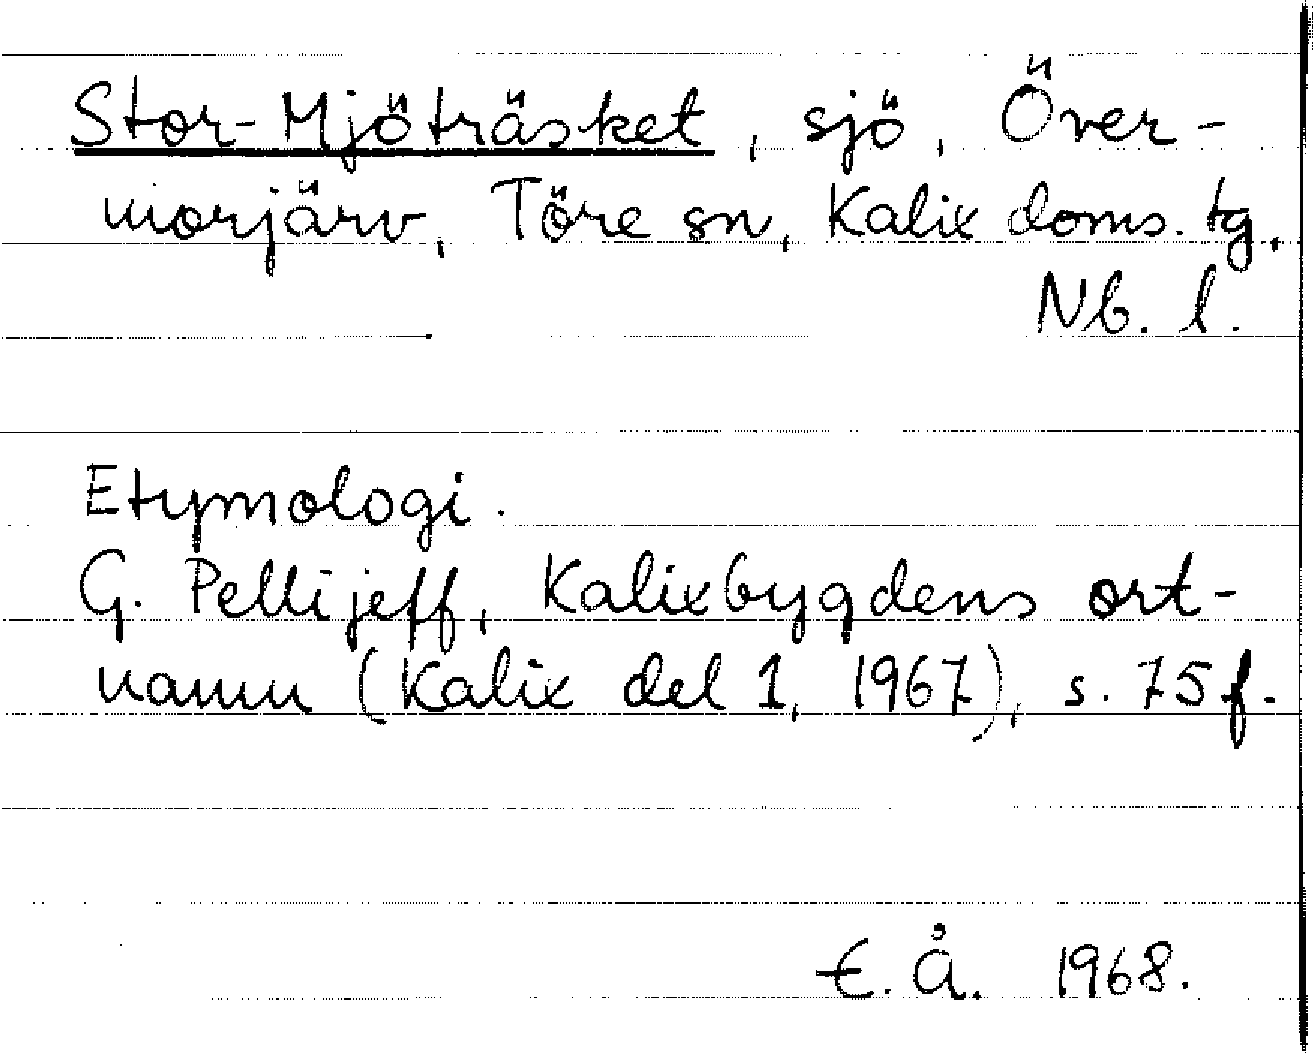 Stor-Mjöträsket, sjö, Över-
morjärv, Töre sn, Kalix doms. tg,
Nb. l.
Etymologi.
G. Pellijeff, Kalixbygdens ort-
namn (Kalix del 1, 1967), s. 75 f.
E. Å. 1968.